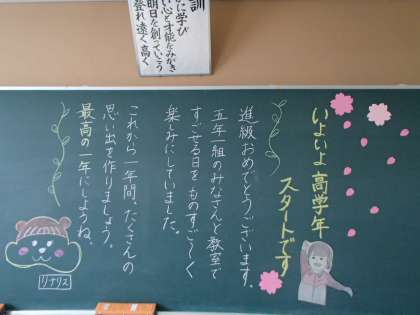 訓
に学び
い心と才能をみがき
明日を創っていこう
登れ遠く高く
いよいよ高学年
スタートです
進級おめでとうございます。
五年一組のみなさんと教室で
すごせる日をものすご〜く
楽しみにしていました。
これから一年間、たくさんの
思い出を作りましょう。
最高の一年にしようね。
リナリス